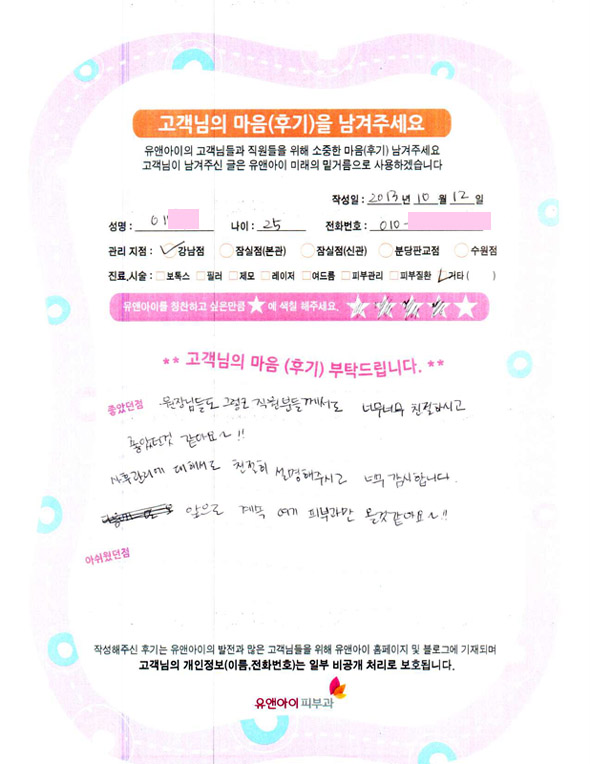 고객님의 마음(후기)을 남겨주세요
유앤아이의 고객님들과 직원들을 위해 소중한 마음(후기) 남겨주세요
고객님이 남겨주신 글은 유앤아이 미래의 밑거름으로 사용하겠습니다
작성일 : 2013년 10 월 12 일
성명 : 이 나이 : 25 전화번호 : 010-
관리 지점 : 강남점 잠실점(본관) 잠실점(신관) 분당판교점 수원점
진료,시술 : 보톡스 필러 제모 레이저 여드름 피부관리 피부질환 기타 ( )
유앤아이를 칭찬하고 싶은만큼 ★ 에 색칠 해주세요.
** 고객님의 마음 (후기) 부탁드립니다. **
좋았던점 원장님들도 그렇고 직원분들께서도 너무너무 친절하시고
좋았던것 같아요~!!
사후관리에 대해서도 친절히 설명해주시고 너무 감사합니다.
앞으로 계속 여기 피부과만 올것같아요~!!
아쉬웠던점
작성해주신 후기는 유앤아이의 발전과 많은 고객님들을 위해 유앤아이 홈페이지 및 블로그에 기재되며
고객님의 개인정보(이름,전화번호)는 일부 비공개 처리로 보호됩니다.
유앤아이 피부과